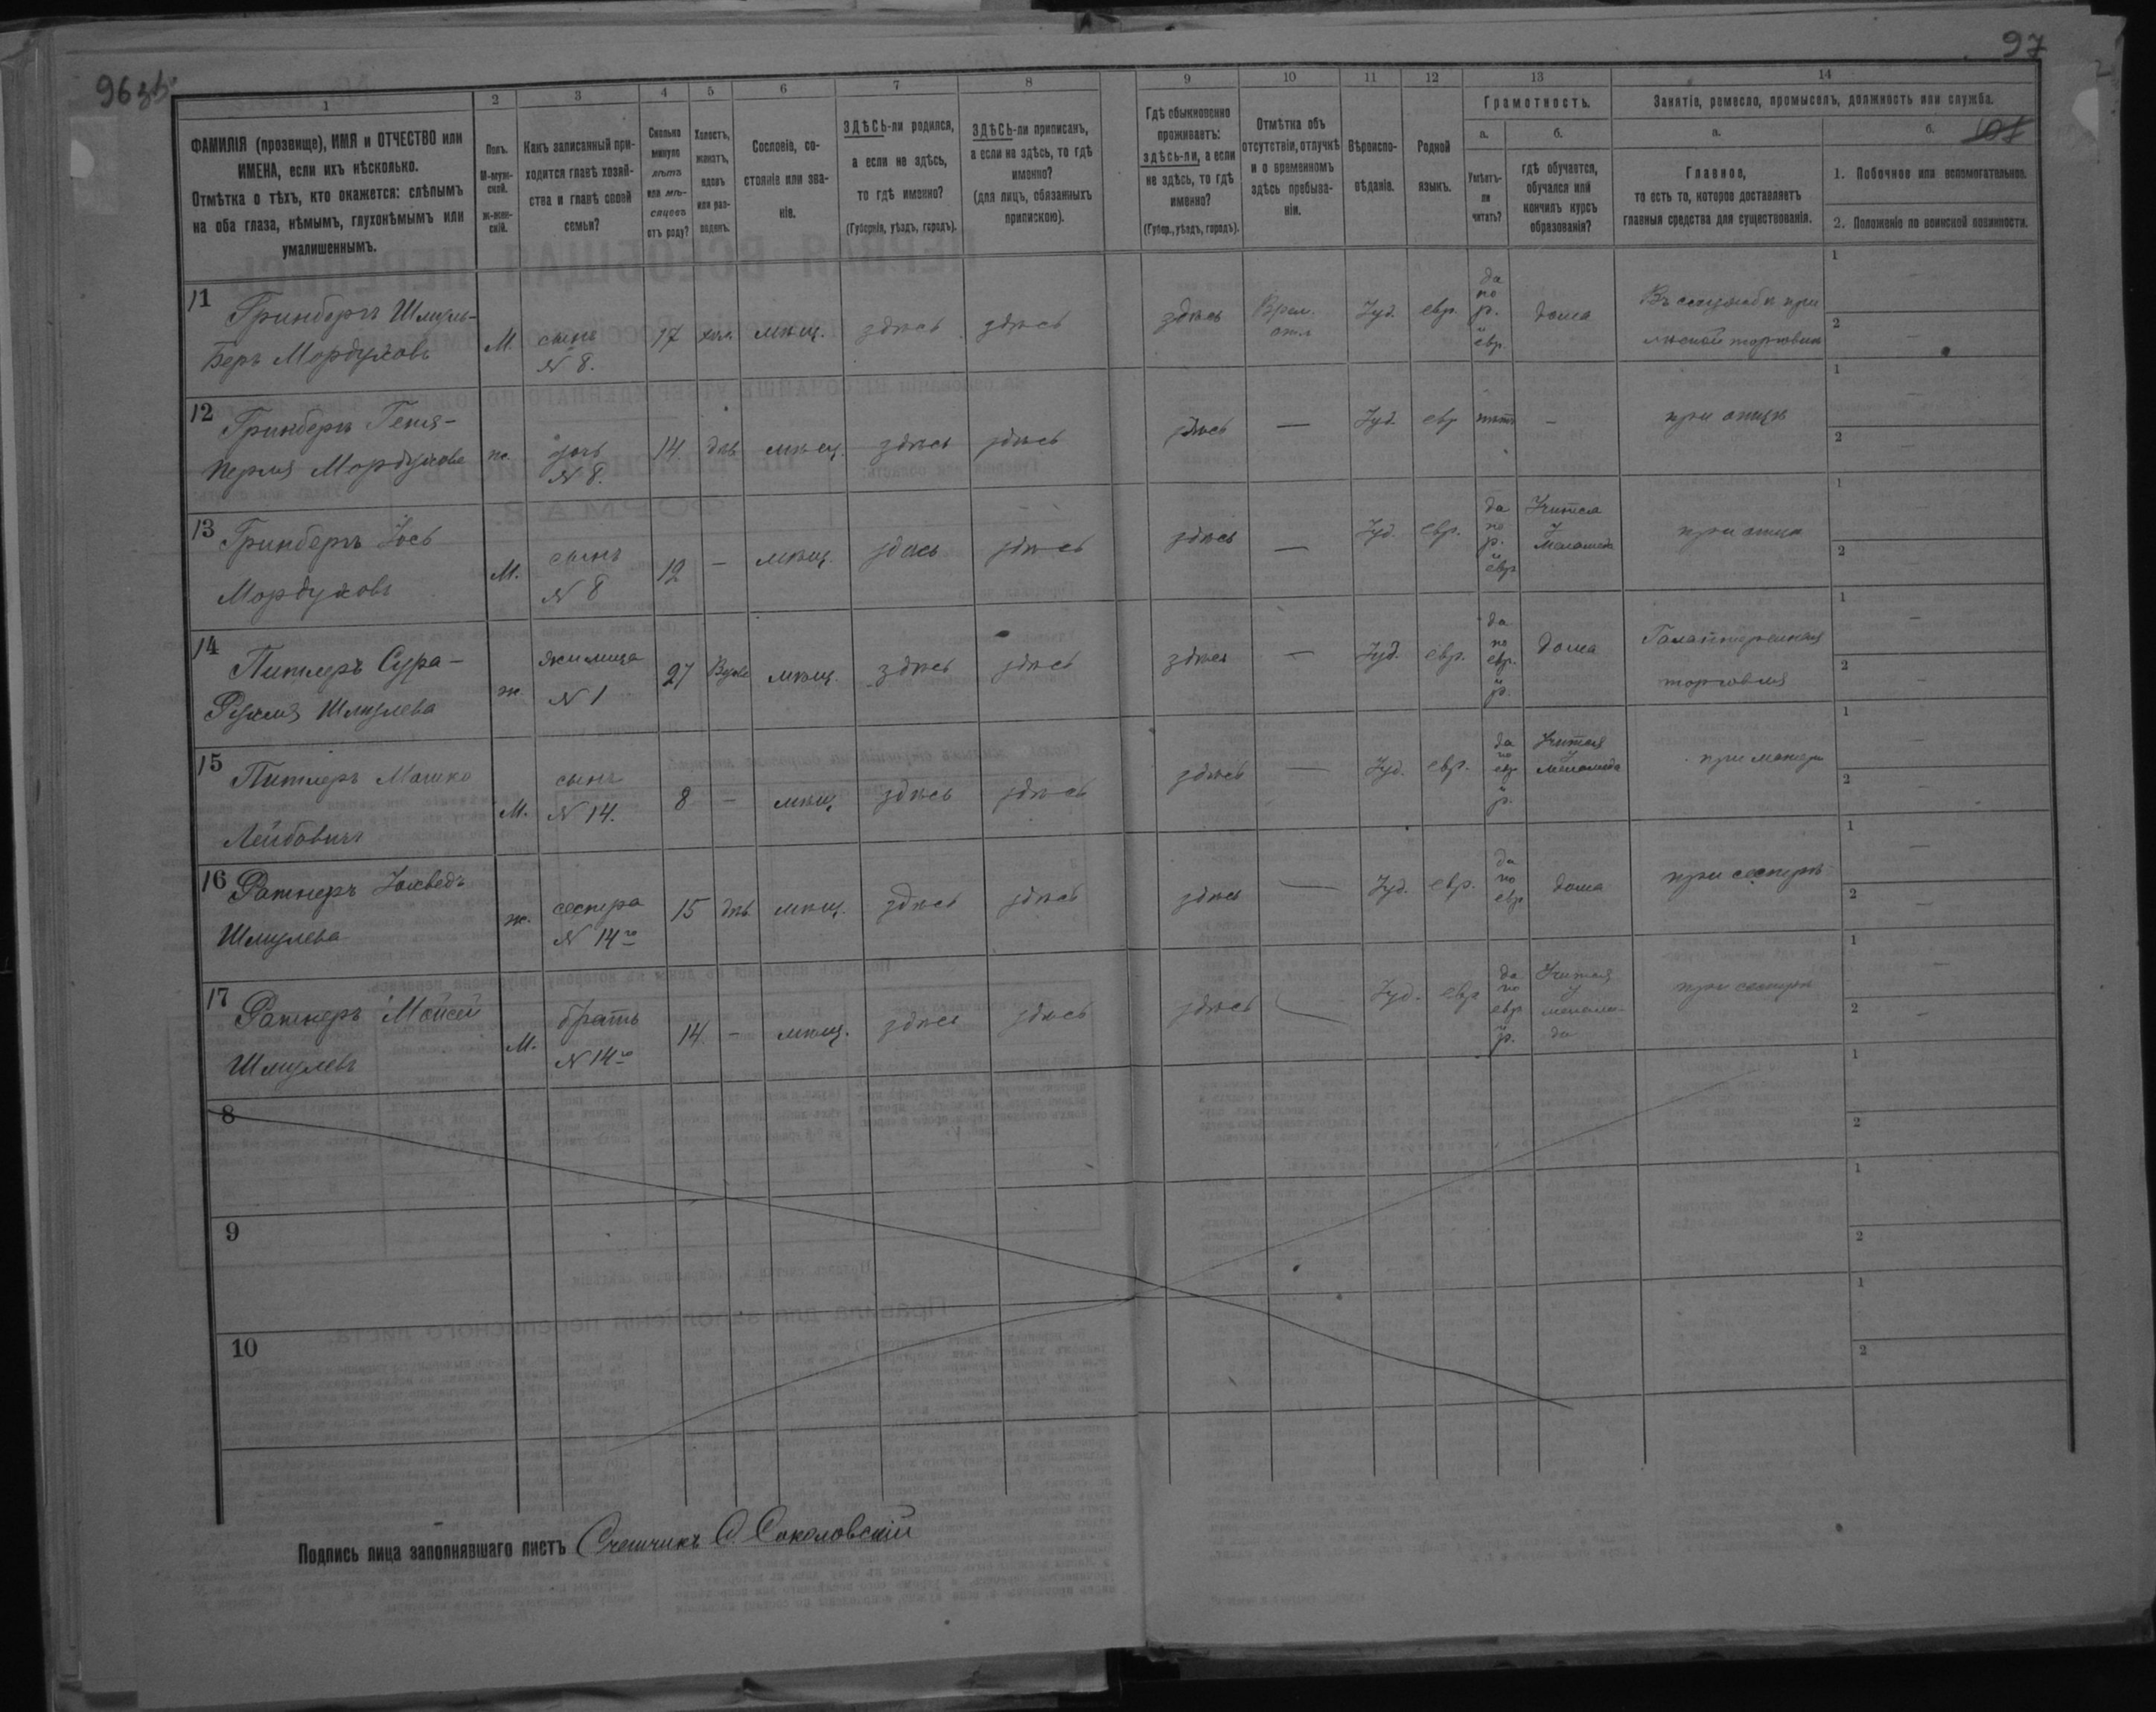 963б.
97
1
2
3
4
5
6
7
8
9
10
11
12
13
14
ФАМИЛІЯ (прозвище), ИМЯ и ОТЧЕСТВО или
ИМЕНА, если ихъ нѣсколько.
Отмѣтка о тѣхъ, кто окажется: слѣпымъ
на оба глаза, нѣмымъ, глухонѣмымъ или
умалишеннымъ.
Полъ.
М-муж-
ской.
ж-жен-
скій.
Какъ записанный при-
ходится главѣ хозяй-
ства и главѣ своей
семьи?
Сколько
минуло
лѣтъ
или мѣ-
сяцевъ
отъ роду?
Холостъ,
женатъ,
вдовъ
или раз-
веденъ.
Сословіе, со-
стояніе или зва-
ніе.
ЗДѢСЬ-ли родился,
а если не здѣсь,
то гдѣ именно?
(Губернія, уѣздъ, городъ).
ЗДѢСЬ-ли приписанъ,
а если не здѣсь, то гдѣ
именно?
(для лицъ, обязанныхъ
припискою).
Гдѣ обыкновенно
проживаетъ:
здѣсь-ли, а если
не здѣсь, то гдѣ
именно?
(Губер., уѣздъ, городъ).
Отмѣтка объ
отсутствіи, отлучкѣ
и о временномъ
здѣсь пребыва-
ніи.
Вѣроиспо-
вѣданіе.
Родной
языкъ.
Грамотность.
а.
б.
Умѣетъ-
ли
читать?
гдѣ обучается,
обучался или
кончилъ курсъ
образованія?
Занятіе, ремесло, промыселъ, должность или служба.
а.
б.
Главное,
то есть то, которое доставляетъ
главныя средства для существованія.
1. Побочное или вспомогательное.
2. Положеніе по воинской повинности.
11
Гринбергъ Шмуль-
Беръ Мордуховъ
М.
сынъ
N 8.
17
хол.
мѣщ.
здѣсь
здѣсь
здѣсь
Врем.
отл.
Іуд.
евр.
да
по
р.
и
евр.
дома
Въ службѣ при
лѣсной торговлѣ
1
2
12
Гринбергъ Геня-
Перля Мордухова
ж.
дочь
N 8.
14
дѣв.
мѣщ.
здѣсь
здѣсь
здѣсь
—
Іуд.
евр
нѣтъ
—
при отцѣ
1
2
13
Гринбергъ Іось
Мордуховъ
М.
сынъ
N 8
12
—
мѣщ.
здѣсь
здѣсь
здѣсь
—
Іуд.
евр.
да
по
р.
и
евр
Учится
у
меламеда
при отцѣ
1
2
14
Питлеръ Сура-
Рухля Шмулева
ж.
жилица
N 1
27
Вдова
мѣщ.
здѣсь
здѣсь
здѣсь
—
Іуд.
евр.
да
по
евр.
и
р.
дома
Галантерейная
торговля
1
2
15
Питлеръ Мошко
Лейбовичъ
М.
сынъ
N 14.
8
—
мѣщ.
здѣсь
здѣсь
здѣсь
—
Іуд.
евр.
да
по
евр
и
р.
Учится
у
меламеда
при матери
1
2
16
Ратнеръ Іохведъ
Шмулева
ж.
сестра
N 14го
15
дѣв.
мѣщ.
здѣсь
здѣсь
здѣсь
—
Іуд.
евр.
да
по
евр
дома
при сестрѣ
1
2
17
Ратнеръ Мойсей
Шмулевъ
М.
братъ
N 14го
14
—
мѣщ.
здѣсь
здѣсь
здѣсь
Іуд.
евр
да
по
евр
и
р.
Учится
у
меламе-
да
при сестрѣ
1
2
8
1
2
9
1
2
10
1
2
Подпись лица заполнявшаго листъ Счетчикъ О. Соколовскій